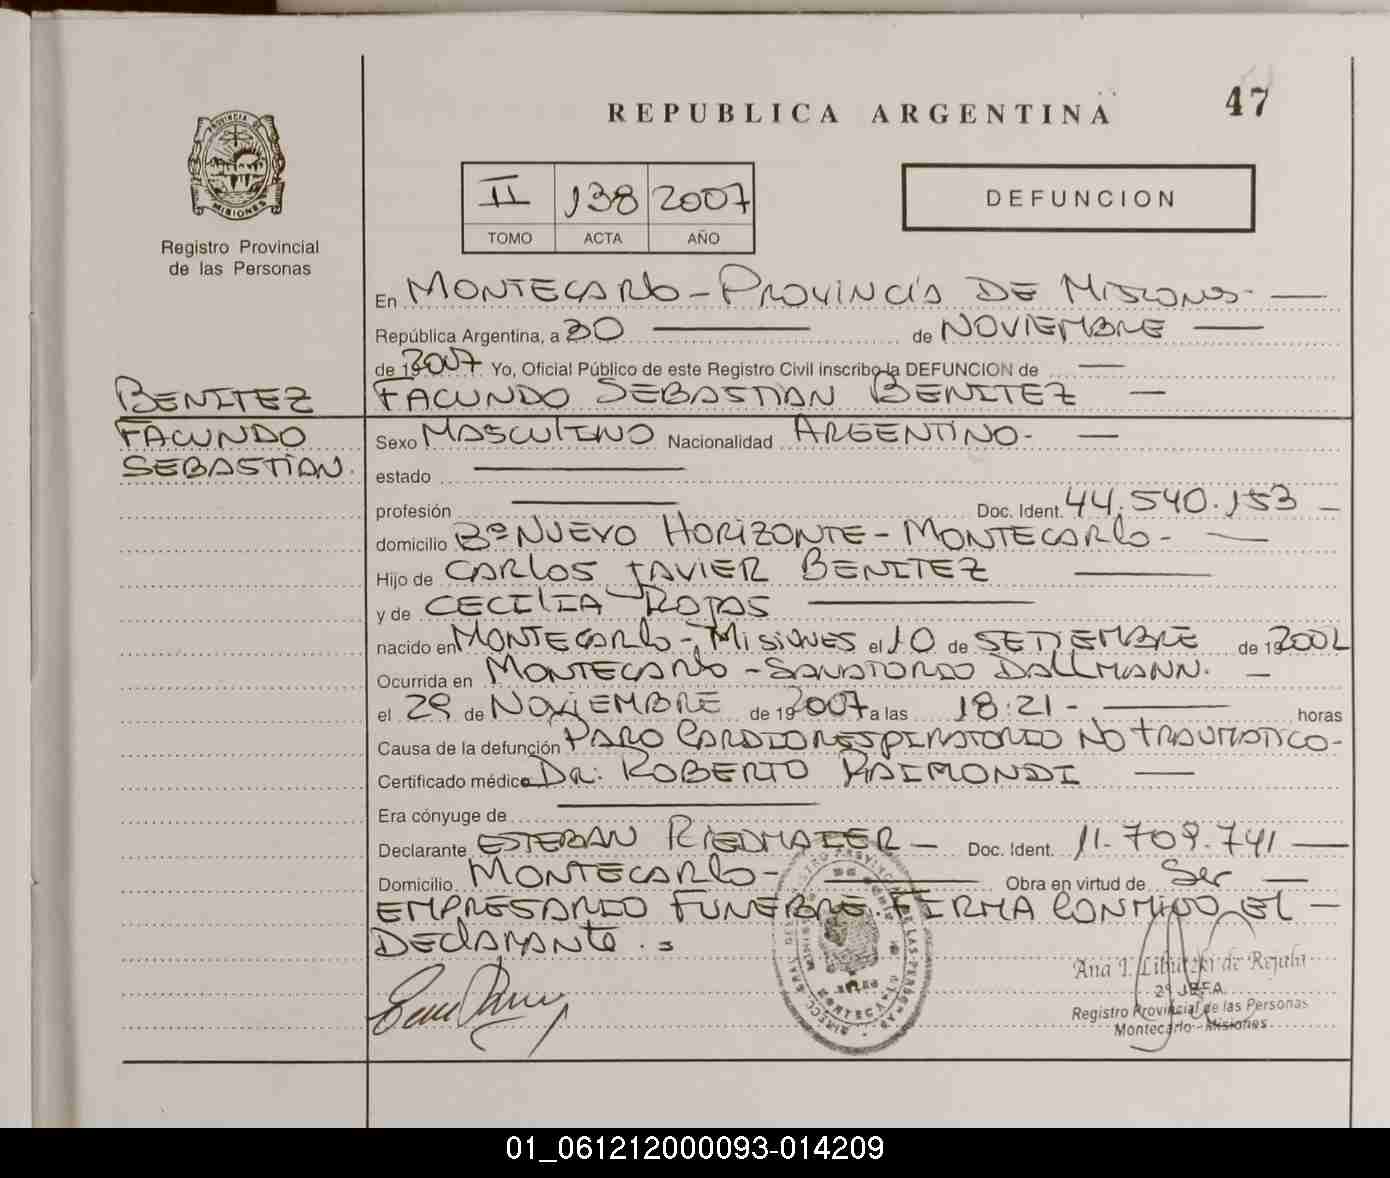 47
REPUBLICA ARGENTINA
PROVINCIA DE
MISIONES
Registro Provincial
de las Personas
II 138 2007
TOMO ACTA AÑO
DEFUNCION
En MONTECARLO - PROVINCIA DE MISIONES -
República Argentina, a 30 de NOVIEMBRE
de 192007 Yo, Oficial Público de este Registro Civil inscribo la DEFUNCION de
FACUNDO SEBASTIAN BENITEZ
BENITEZ
FACUNDO
SEBASTIAN.
Sexo MASCULINO Nacionalidad ARGENTINO-
estado
profesión Doc. Ident. 44.540.153
domicilio Bº NUEVO HORIZONTE - MONTECARLO -
Hijo de CARLOS JAVIER BENITEZ
y de CECILIA ROJAS
nacido en MONTECARLO - MISIONES el 10 de SETIEMBRE de 192002
Ocurrida en MONTECARLO - SANATORIO DALLMANN.
el 29 de NOVIEMBRE de 192007 a las 18:21 - horas
Causa de la defunción PARO CARDIORESPIRATORIO NO TRAUMATICO-
Certificado médico DR: ROBERTO RAIMONDI
Era cónyuge de
Declarante ESTEBAN RIEDMAIER - Doc. Ident. 11.709.741
Domicilio MONTECARLO - Obra en virtud de Ser
EMPRESARIO FUNEBRE. FIRMA CONMIGO EL
DECLARANTE.
Ana I. de Rejala
2º JEFA
Registro Provincial de las Personas
Montecarlo - Misiones
01_061212000093-014209